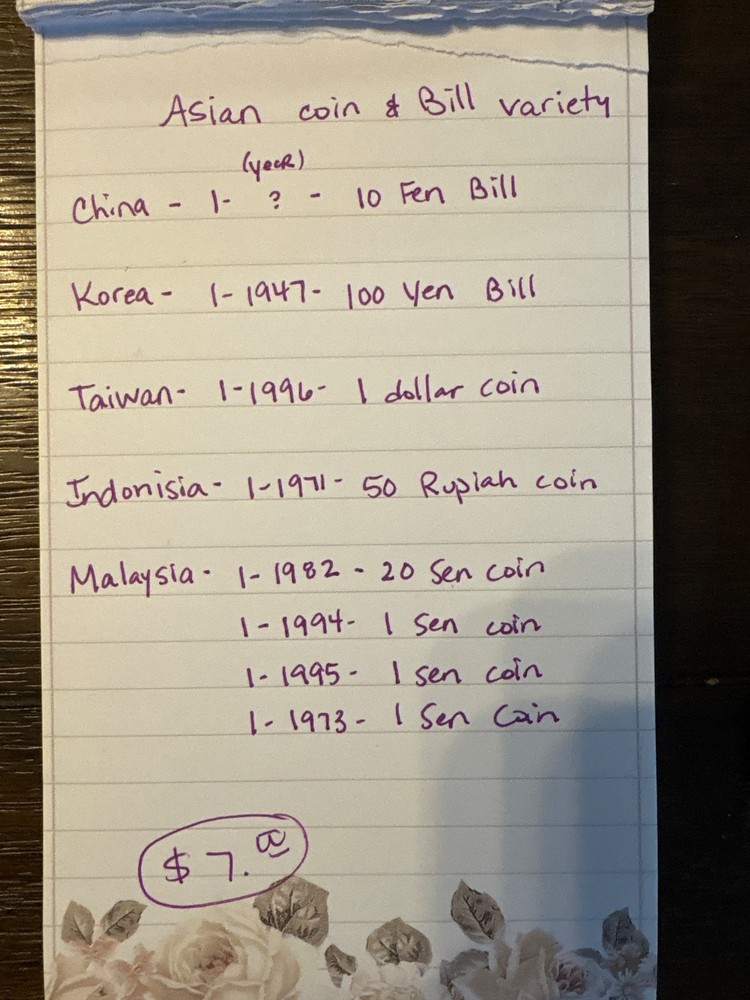 Asian coin & Bill variety
(year)
China - 1- ? - 10 Fen Bill
Korea - 1-1947- 100 Yen Bill
Taiwan- 1-1996- 1 dollar coin
Indonisia- 1-1971- 50 Rupiah coin
Malaysia- 1-1982 - 20 Sen coin
1-1994- 1 Sen coin
1-1995- 1 sen coin
1-1973- 1 Sen Coin
$7.00